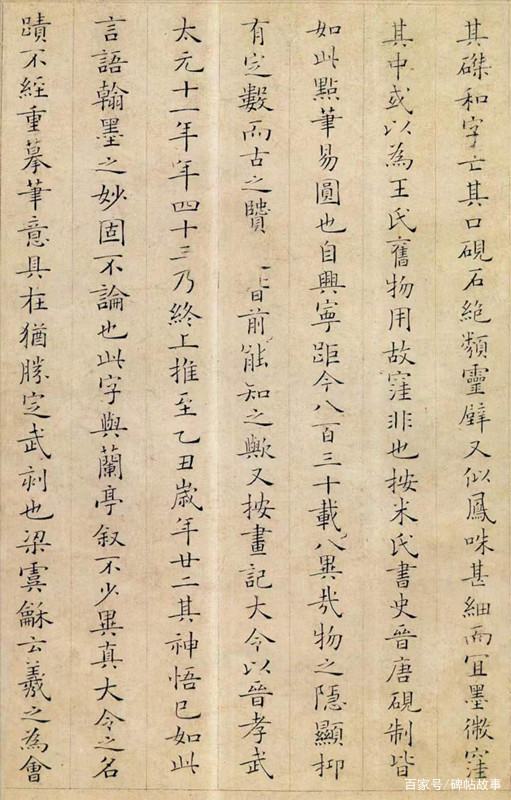 其磔和字亡其口硯石絶類靈壁又似鳳咮甚細而冝墨微窪
其中或以為王氏舊物用故窪非也按米氏書史晉唐硯制皆
如此點筆易圓也自興寧距今八百三十載八異㢤物之隱顯抑
有定數而古之賢 昔前能知之歟又按畫記大令以晉孝武
太元十一年年四十三乃終上推至乙丑歲年廿二其神悟已如此
言語翰墨之妙固不論也此字與蘭亭叙不少異真大令之名
蹟不經重摹筆意具在猶勝定武刻也梁虞龢云羲之為會
百家号/碑帖故事